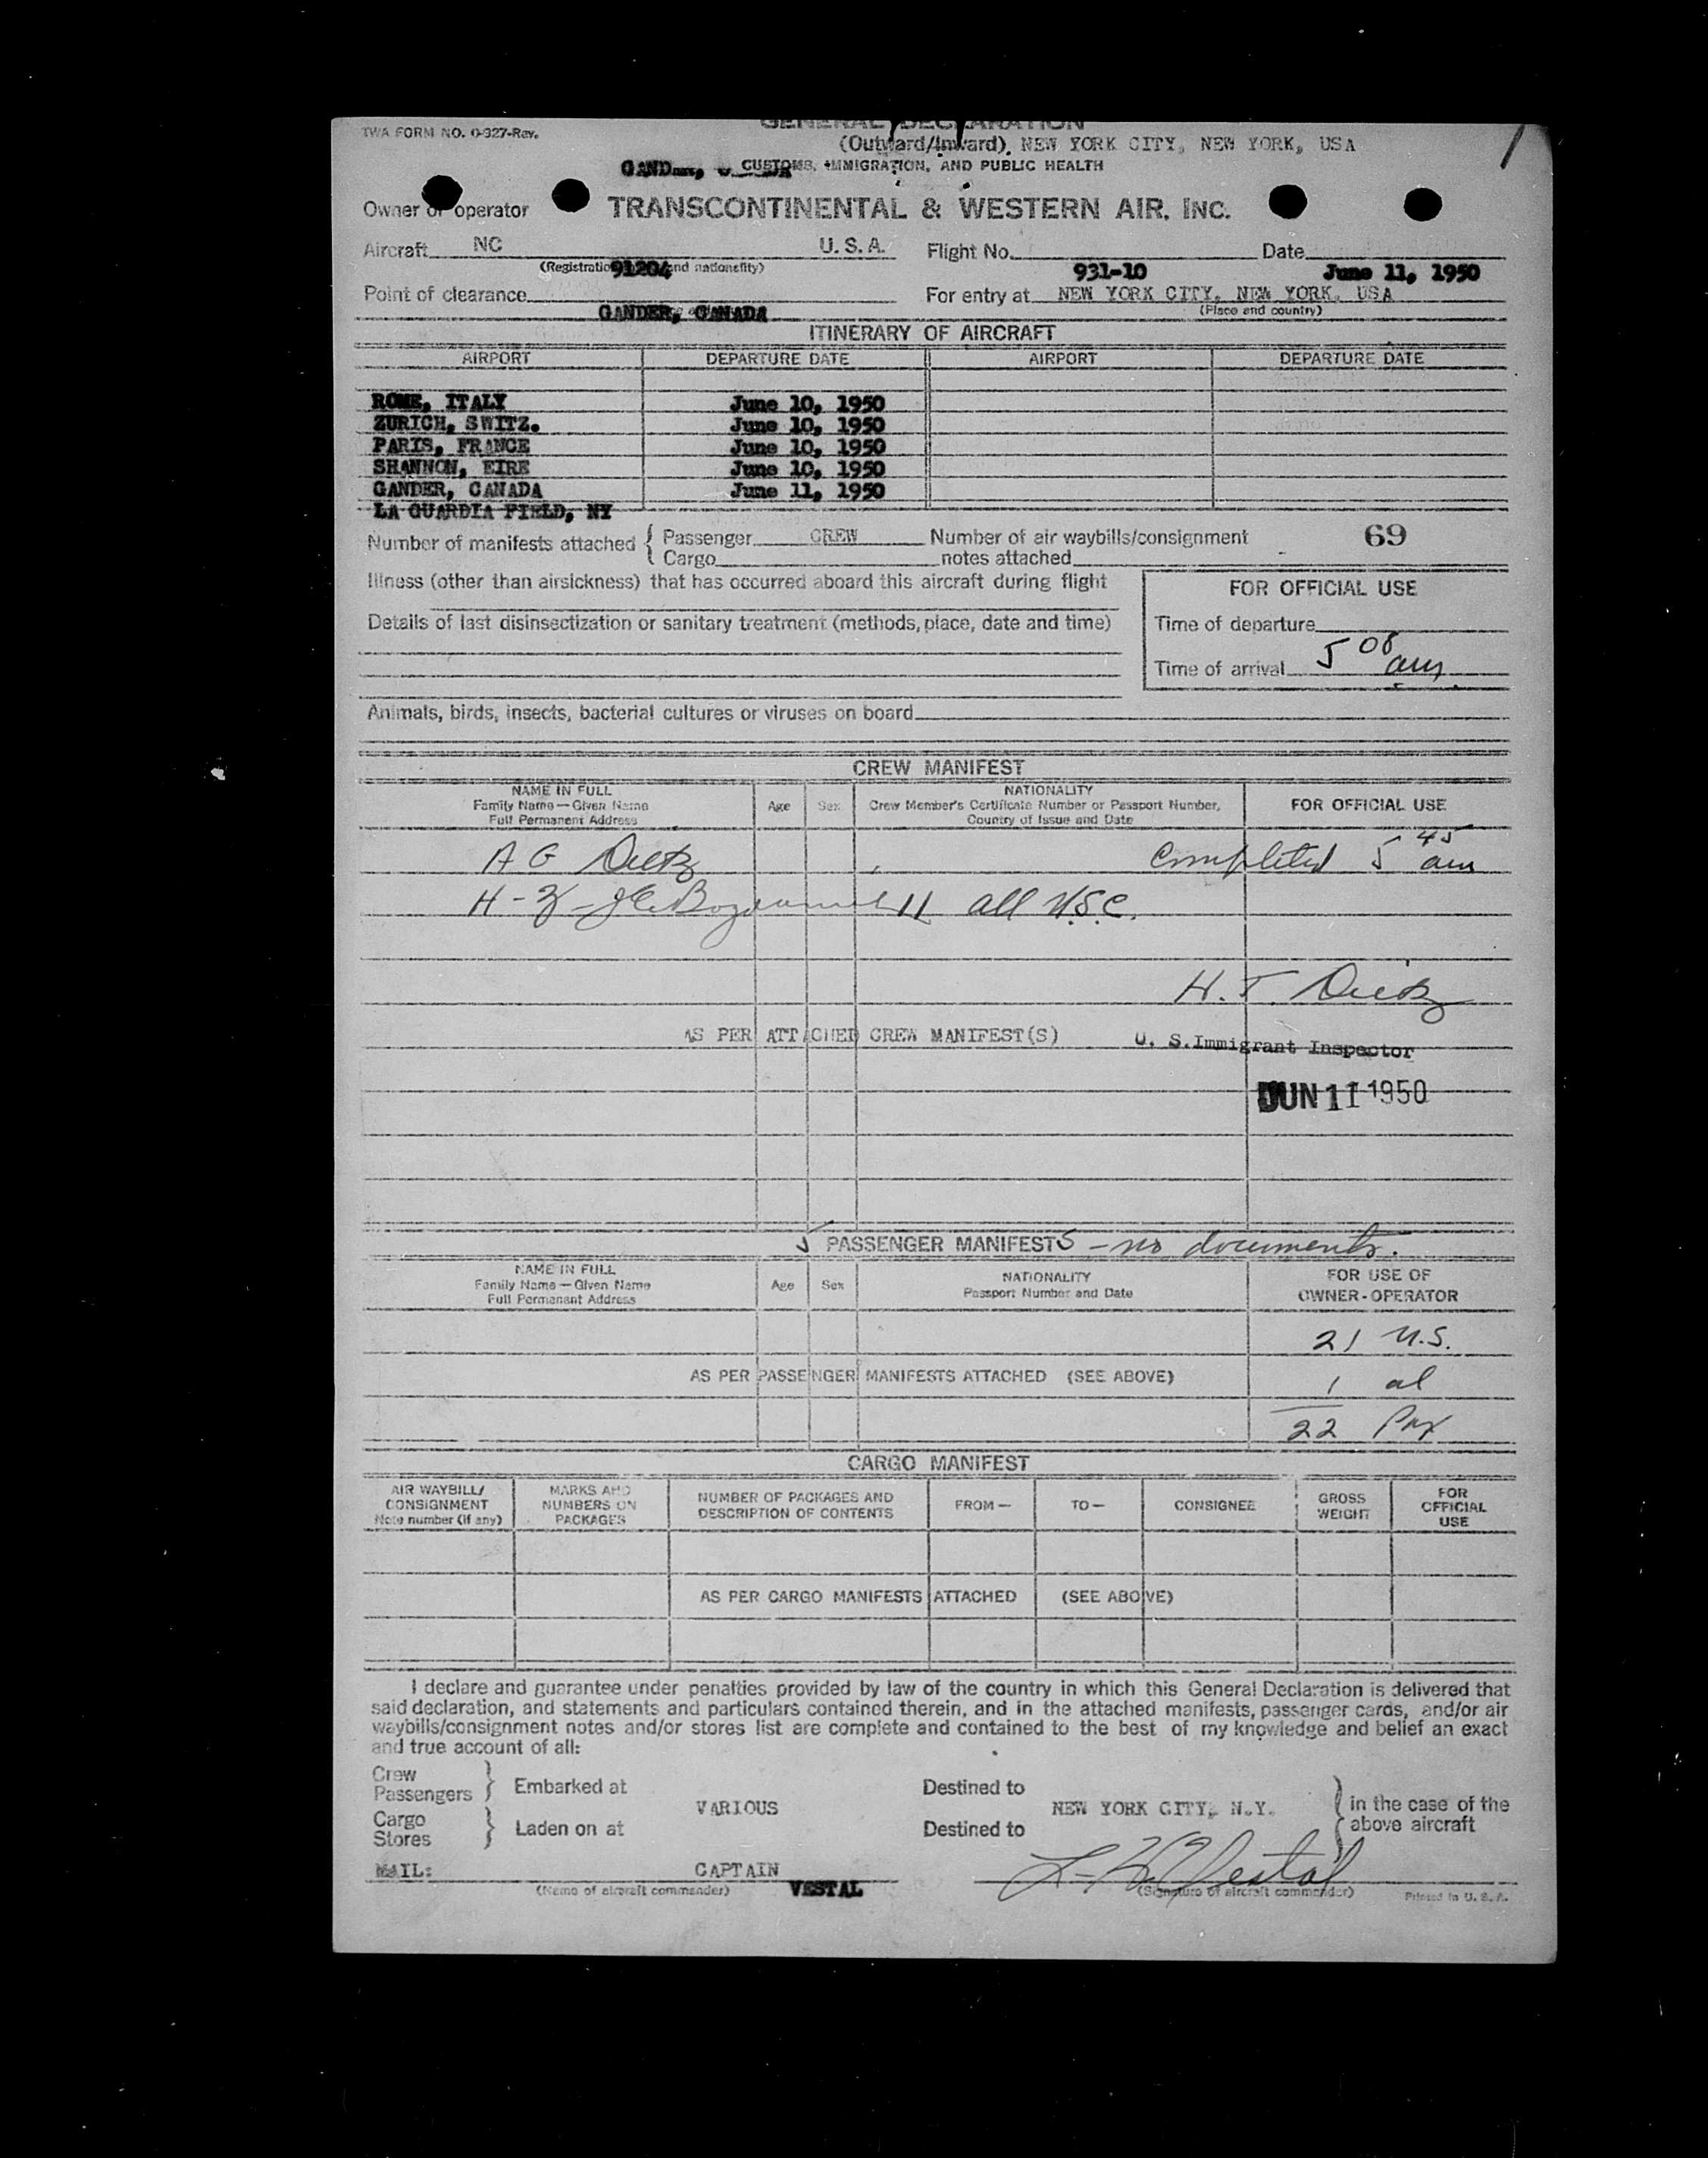 TWA FORM NO. 0-927-Rev.
GENERAL DECLARATION
(Outward/Inward), NEW YORK CITY, NEW YORK, USA
CUSTOMS, IMMIGRATION, AND PUBLIC HEALTH
Owner or operator TRANSCONTINENTAL & WESTERN AIR, INC.
Aircraft NC U. S. A. Flight No. Date
(Registration and nationality) 91204 931-10 June 11, 1950
Point of clearance For entry at NEW YORK CITY, NEW YORK, USA
GANDER, CANADA (Place and country)
ITINERARY OF AIRCRAFT
AIRPORT DEPARTURE DATE AIRPORT DEPARTURE DATE
ROME, ITALY June 10, 1950
ZURICH, SWITZ. June 10, 1950
PARIS, FRANCE June 10, 1950
SHANNON, EIRE June 10, 1950
GANDER, CANADA June 11, 1950
LA GUARDIA FIELD, NY
Number of manifests attached { Passenger CREW Number of air waybills/consignment 69
Cargo notes attached
Illness (other than airsickness) that has occurred aboard this aircraft during flight
FOR OFFICIAL USE
Details of last disinsectization or sanitary treatment (methods, place, date and time)
Time of departure
Time of arrival 5 08 am
Animals, birds, insects, bacterial cultures or viruses on board
CREW MANIFEST
NAME IN FULL NATIONALITY
Family Name — Given Name Age Sex Crew Member's Certificate Number or Passport Number, FOR OFFICIAL USE
Full Permanent Address Country of Issue and Date
A G Dietz Completed 5 45 am
11 all U.S.C.
H. T. Dietz
AS PER ATTACHED CREW MANIFEST(S) U. S. Immigrant Inspector
JUN 11 1950
5 PASSENGER MANIFESTS - no documents.
NAME IN FULL NATIONALITY FOR USE OF
Family Name — Given Name Age Sex Passport Number and Date OWNER-OPERATOR
Full Permanent Address
21 U.S.
AS PER PASSENGER MANIFESTS ATTACHED (SEE ABOVE) 1 al
22 Pax
CARGO MANIFEST
AIR WAYBILL/ MARKS AND NUMBER OF PACKAGES AND FROM — TO — CONSIGNEE GROSS FOR
CONSIGNMENT NUMBERS ON DESCRIPTION OF CONTENTS WEIGHT OFFICIAL
Note number (if any) PACKAGES USE
AS PER CARGO MANIFESTS ATTACHED (SEE ABOVE)
I declare and guarantee under penalties provided by law of the country in which this General Declaration is delivered that
said declaration, and statements and particulars contained therein, and in the attached manifests, passenger cards, and/or air
waybills/consignment notes and/or stores list are complete and contained to the best of my knowledge and belief an exact
and true account of all:
Crew
Passengers } Embarked at Destined to
VARIOUS NEW YORK CITY, N.Y. } in the case of the
Cargo
Stores } Laden on at Destined to above aircraft
MAIL: CAPTAIN L. H. Vestal
(Name of aircraft commander) VESTAL (Signature of aircraft commander) Printed in U. S. A.